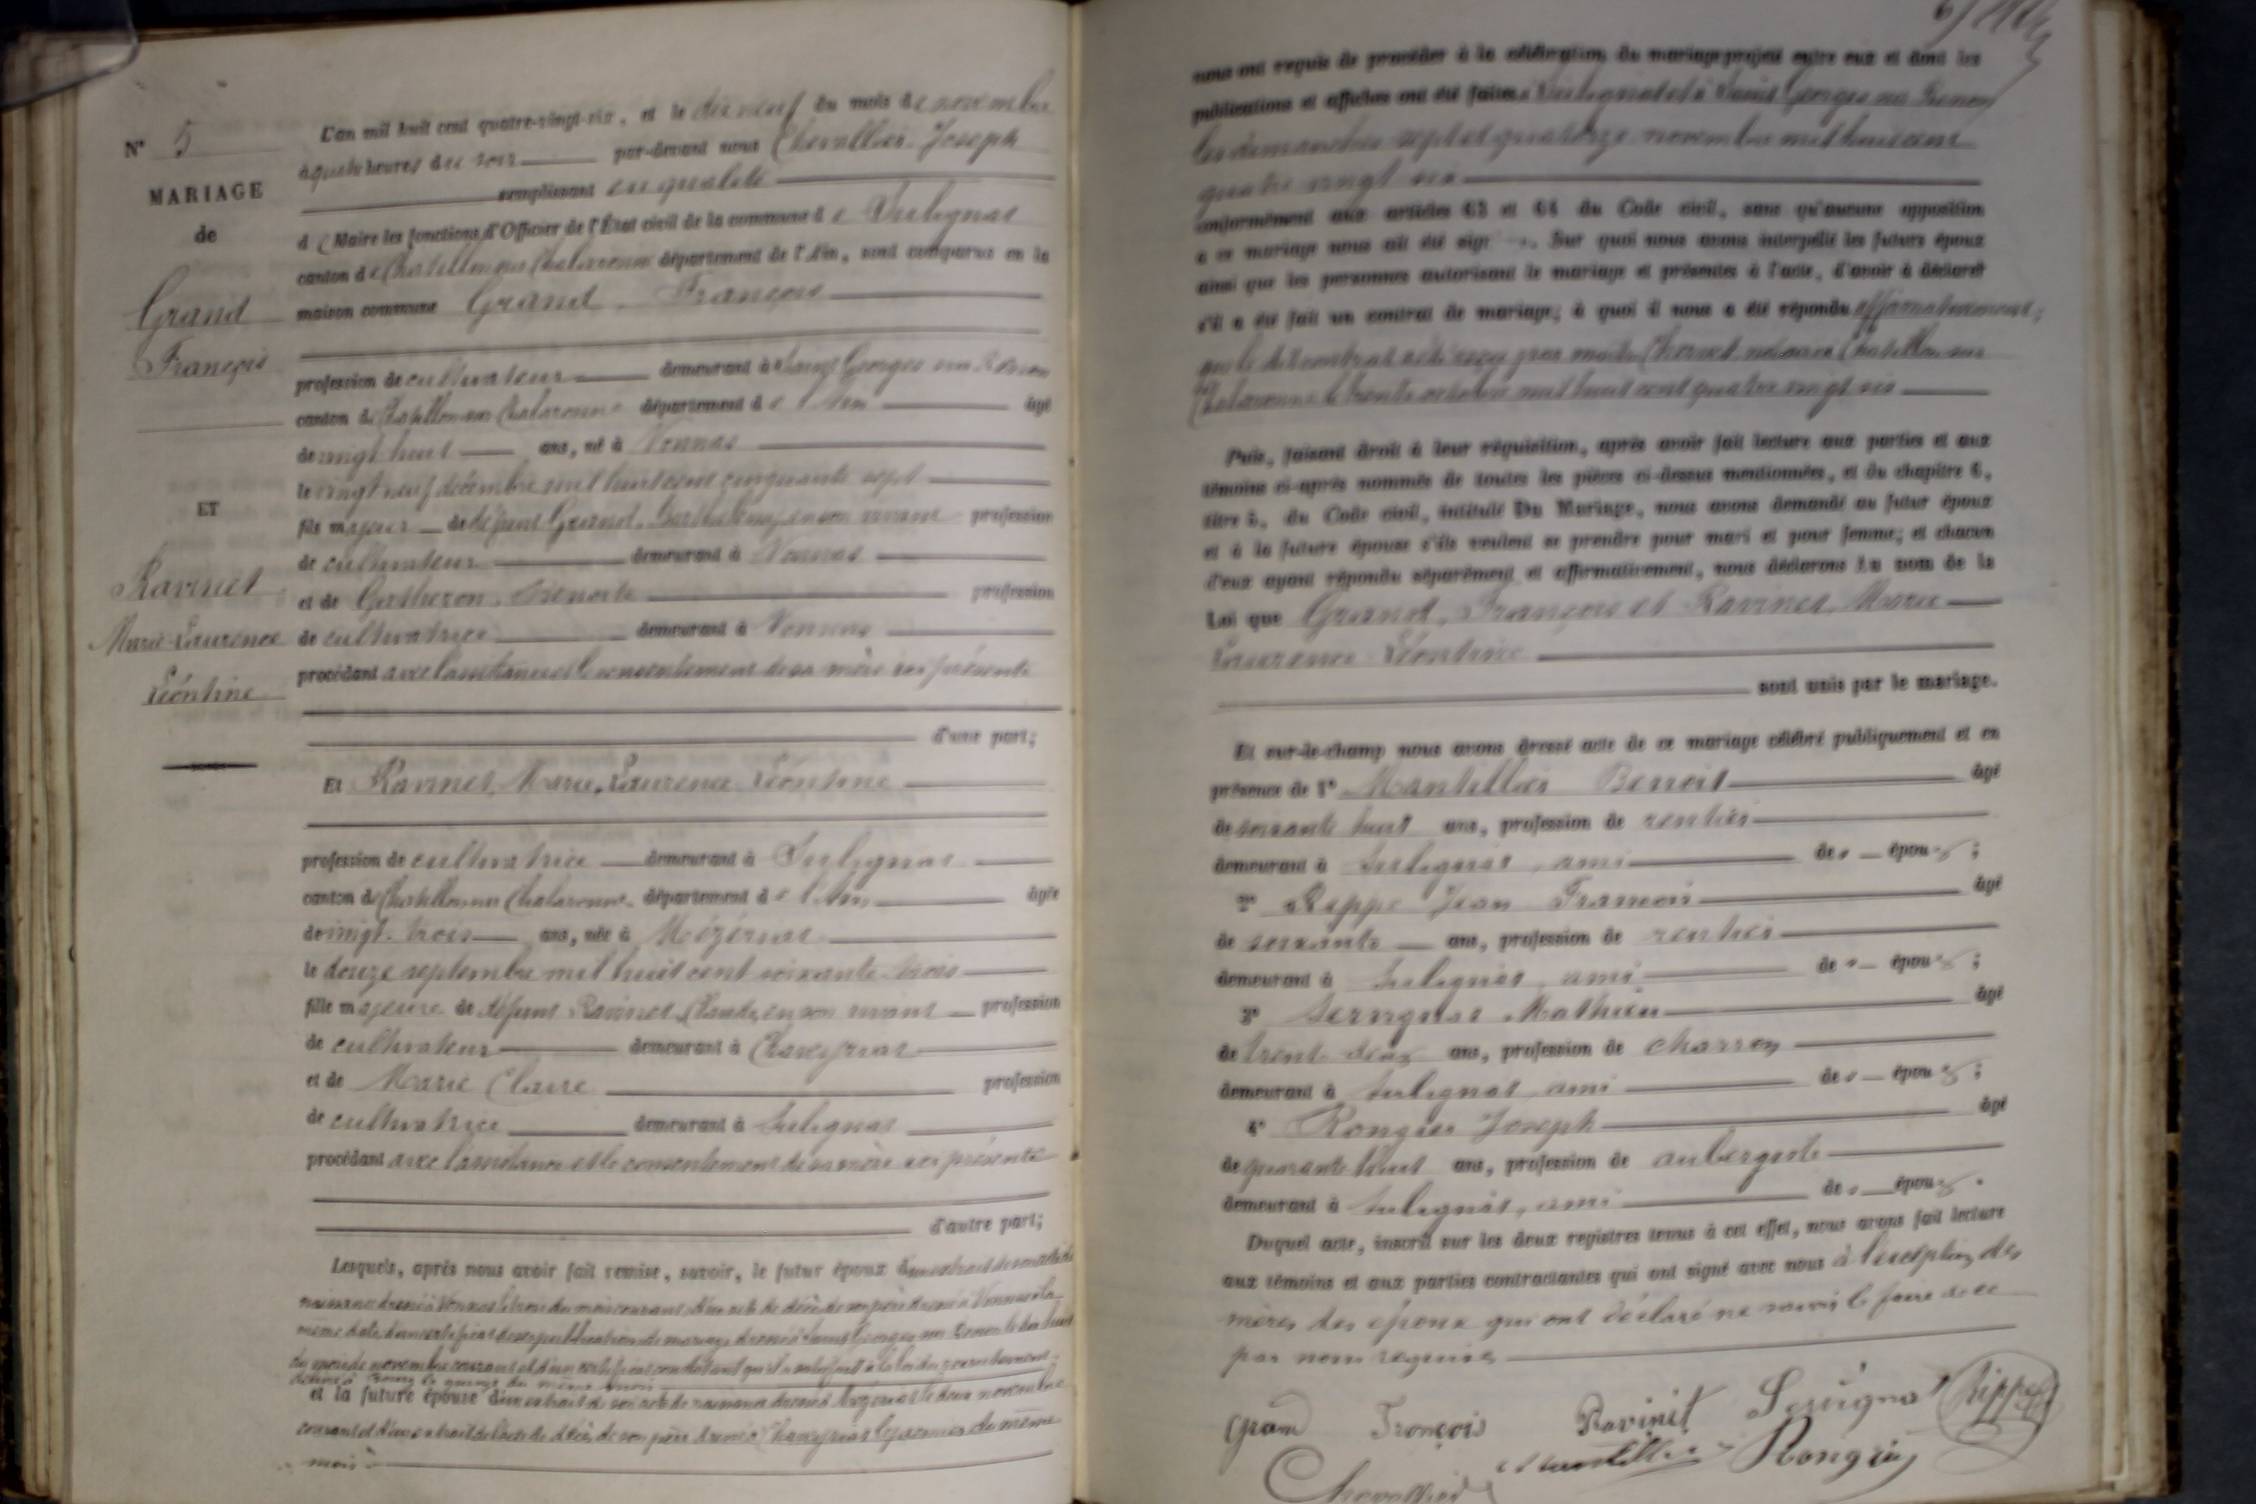 N° 5
MARIAGE
de
Grand
François
ET
Ravinet
Marie Laurence
Léontine
L'an mil huit cent quatre-vingt-six, et le dix neuf du mois de novembre
à quatre heures du soir par-devant nous Chevallier Joseph
remplissant en qualité
de Maire les fonctions d'Officier de l'État civil de la commune de Sulignat
canton de Chatillon sur Chalaronne département de l'Ain, sont comparus en la
maison commune Grand, François
profession de cultivateur demeurant à Saint Georges sur Renon
canton de Chatillon sur Chalaronne département de l'Ain âgé
de vingt huit ans, né à Vonnas
le vingt neuf décembre mil huit cent cinquante sept
fils majeur de défunt Grand, Barthélemy, en son vivant profession
de cultivateur demeurant à Vonnas
et de Benoite profession
de cultivatrice demeurant à Vonnas
procédant avec l'assistance et le consentement de sa mère ici présente
d'une part;
Et Ravinet, Marie, Laurence Léontine
profession de cultivatrice demeurant à Sulignat
canton de Chatillon sur Chalaronne département de l'Ain âgée
de vingt-trois ans, née à Mézériat
le douze septembre mil huit cent soixante trois
fille majeure de défunt Ravinet, Claude, en son vivant profession
de cultivateur demeurant à Chaveyriat
et de Marie Claire profession
de cultivatrice demeurant à Sulignat
procédant avec l'assistance et le consentement de sa mère ici présente
d'autre part;
Lesquels, après nous avoir fait remise, savoir, le futur époux d'un extrait de son acte de
naissance dressé à Vonnas le trois du mois courant, d'un acte de décès de son père dressé à Vonnas à la
même date, d'un certificat de publication de mariage dressé à Saint Georges sur Renon le dix huit
du mois de novembre courant et d'un certificat constatant qu'il a satisfait à la loi du recrutement
du même mois
et la future épouse d'un extrait de son acte de naissance dressé à Mézériat le deux novembre
courant et d'un extrait de l'acte de décès de son père dressé à Chaveyriat le premier du même
mois
nous ont requis de procéder à la célébration du mariage projeté entre eux et dont les
publications et affiches ont été faites à Sulignat et à Saint Georges sur Renon
les dimanches sept et quatorze novembre mil huit cent
quatre vingt six
conformément aux articles 63 et 64 du Code civil, sans qu'aucune opposition
à ce mariage nous ait été sign. Sur quoi nous avons interpellé les futurs époux
ainsi que les personnes autorisant le mariage et présentes à l'acte, d'avoir à déclarer
s'il a été fait un contrat de mariage; à quoi il nous a été répondu affirmativement;
que le dit contrat a été reçu par maitre notaire à Chatillon sur
Chalaronne le trente octobre mil huit cent quatre vingt six
Puis, faisant droit à leur réquisition, après avoir fait lecture aux parties et aux
témoins ci-après nommés de toutes les pièces ci-dessus mentionnées, et du chapitre 6,
titre 5, du Code civil, intitulé Du Mariage, nous avons demandé au futur époux
et à la future épouse s'ils veulent se prendre pour mari et pour femme; et chacun
d'eux ayant répondu séparément et affirmativement, nous déclarons au nom de la
Loi que Grand, François et Ravinet, Marie
Laurence Léontine
sont unis par le mariage.
Et sur-le-champ nous avons dressé acte de ce mariage célébré publiquement et en
présence de 1° Mantellier Benoit âgé
de soixante huit ans, profession de rentier
demeurant à Sulignat, ami des époux;
2° Rippe Jean François âgé
de soixante ans, profession de rentier
demeurant à Sulignat, ami des époux;
3° Serugnat Mathieu âgé
de trente deux ans, profession de charron
demeurant à Sulignat, ami des époux;
4° Rongier Joseph âgé
de quarante huit ans, profession de aubergiste
demeurant à Sulignat, ami des époux.
Duquel acte, inscrit sur les deux registres tenus à cet effet, nous avons fait lecture
aux témoins et aux parties contractantes qui ont signé avec nous à l'exception des
mères des époux qui ont déclaré ne savoir le faire de ce
par nous requises
Grand François Ravinet Serugnat Rippe
Mantellier Rongier
Chevallier